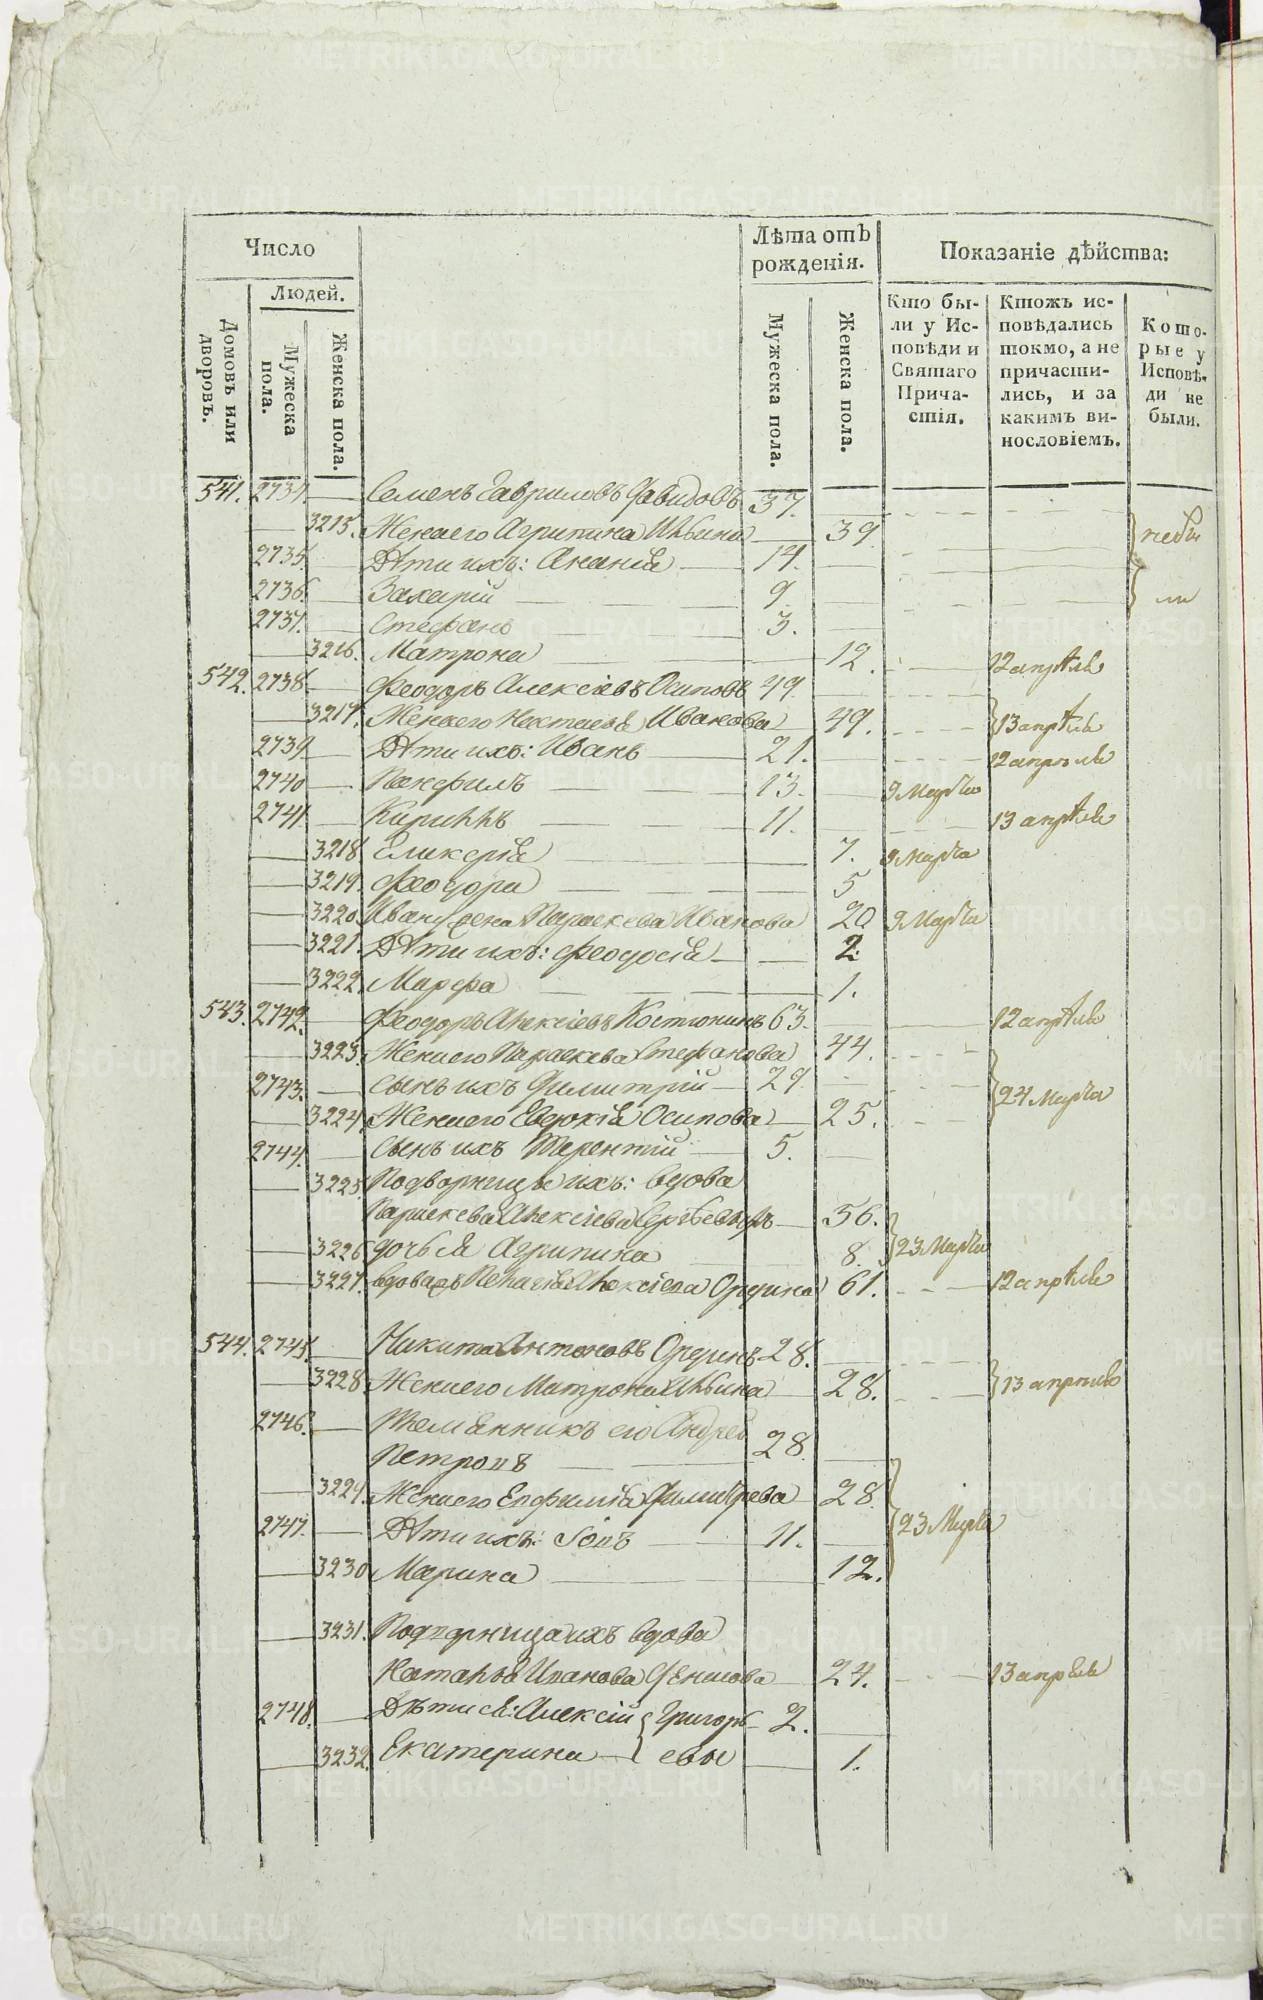 Число
Людей.
Домовъ или дворовъ.
Мужеска пола.
Женска пола.
Лѣта отъ рожденія.
Мужеска пола.
Женска пола.
Показаніе дѣйства:
Кто бы-
ли у Ис-
повѣди и
Святаго
Прича-
стія.
Ктожъ ис-
повѣдались
токмо, а не
причасти-
лись, и за
какимъ ви-
нословіемъ.
Кото-
рые у
Исповѣ-
ди не
были.
541. 2734. Семенъ Гавриловъ Давидовъ 37.
3215. Жена его Агрипина Ильина 39 небы
2735. Дѣти ихъ: Ананія 14.
2736. Захарій 9. ли
2737. Стефанъ 3.
3216. Матрона 12. 12 апрѣля
542. 2738. Феодоръ Алексіевъ Осиповъ 49.
3217. Жена его Иванова 49. 13 апрѣля
2739. Дѣти ихъ: Иванъ 21. 12 апрѣля
2740 Панфилъ 13. 9 Марта
2741. Кириллъ 11. 13 апрѣля
3218. Гликерія 7. 9 Марта
3219. Феодора 5
3220. Ивану жена Параскева Иванова 20 9 Марта
3221. Дѣти ихъ: Феодосія 2.
3222. Марфа 1.
543. 2742. Феодоръ Алексіевъ Костюнинъ 63. 12 апрѣля
3223. Жена его Параскева Стефанова 44.
2743. Сынъ ихъ Димитрій 29 24 Марта
3224. Жена его Евдокія Осипова 25.
2744. Сынъ ихъ Терентій 5.
3225. Подворницы ихъ: вдова
Параскева Алексіева 56.
3226 дочь ея Агрипина 8. 23 Марта
3227. вдова Пелагія Алексіева Ордина 61. 12 апрѣля
544. 2745. Никита Антоновъ Ординъ 28.
3228. Жена его Матрона Ильина 28. 13 апрѣля
2746. Племянникъ его Андрей
Петровъ 28
3229. Жена его Евфимія Димитрева 28.
2747. Дѣти ихъ: Іовъ 11. 23 Марта
3230 Марина 12.
3231. Подворница ихъ вдова
Наталья Иванова 24. 13 апрѣля
2748. Дѣти ея: Алексій Григорь- 2.
3232. Екатерина евы 1.
METRIKI.GASO-URAL.RU